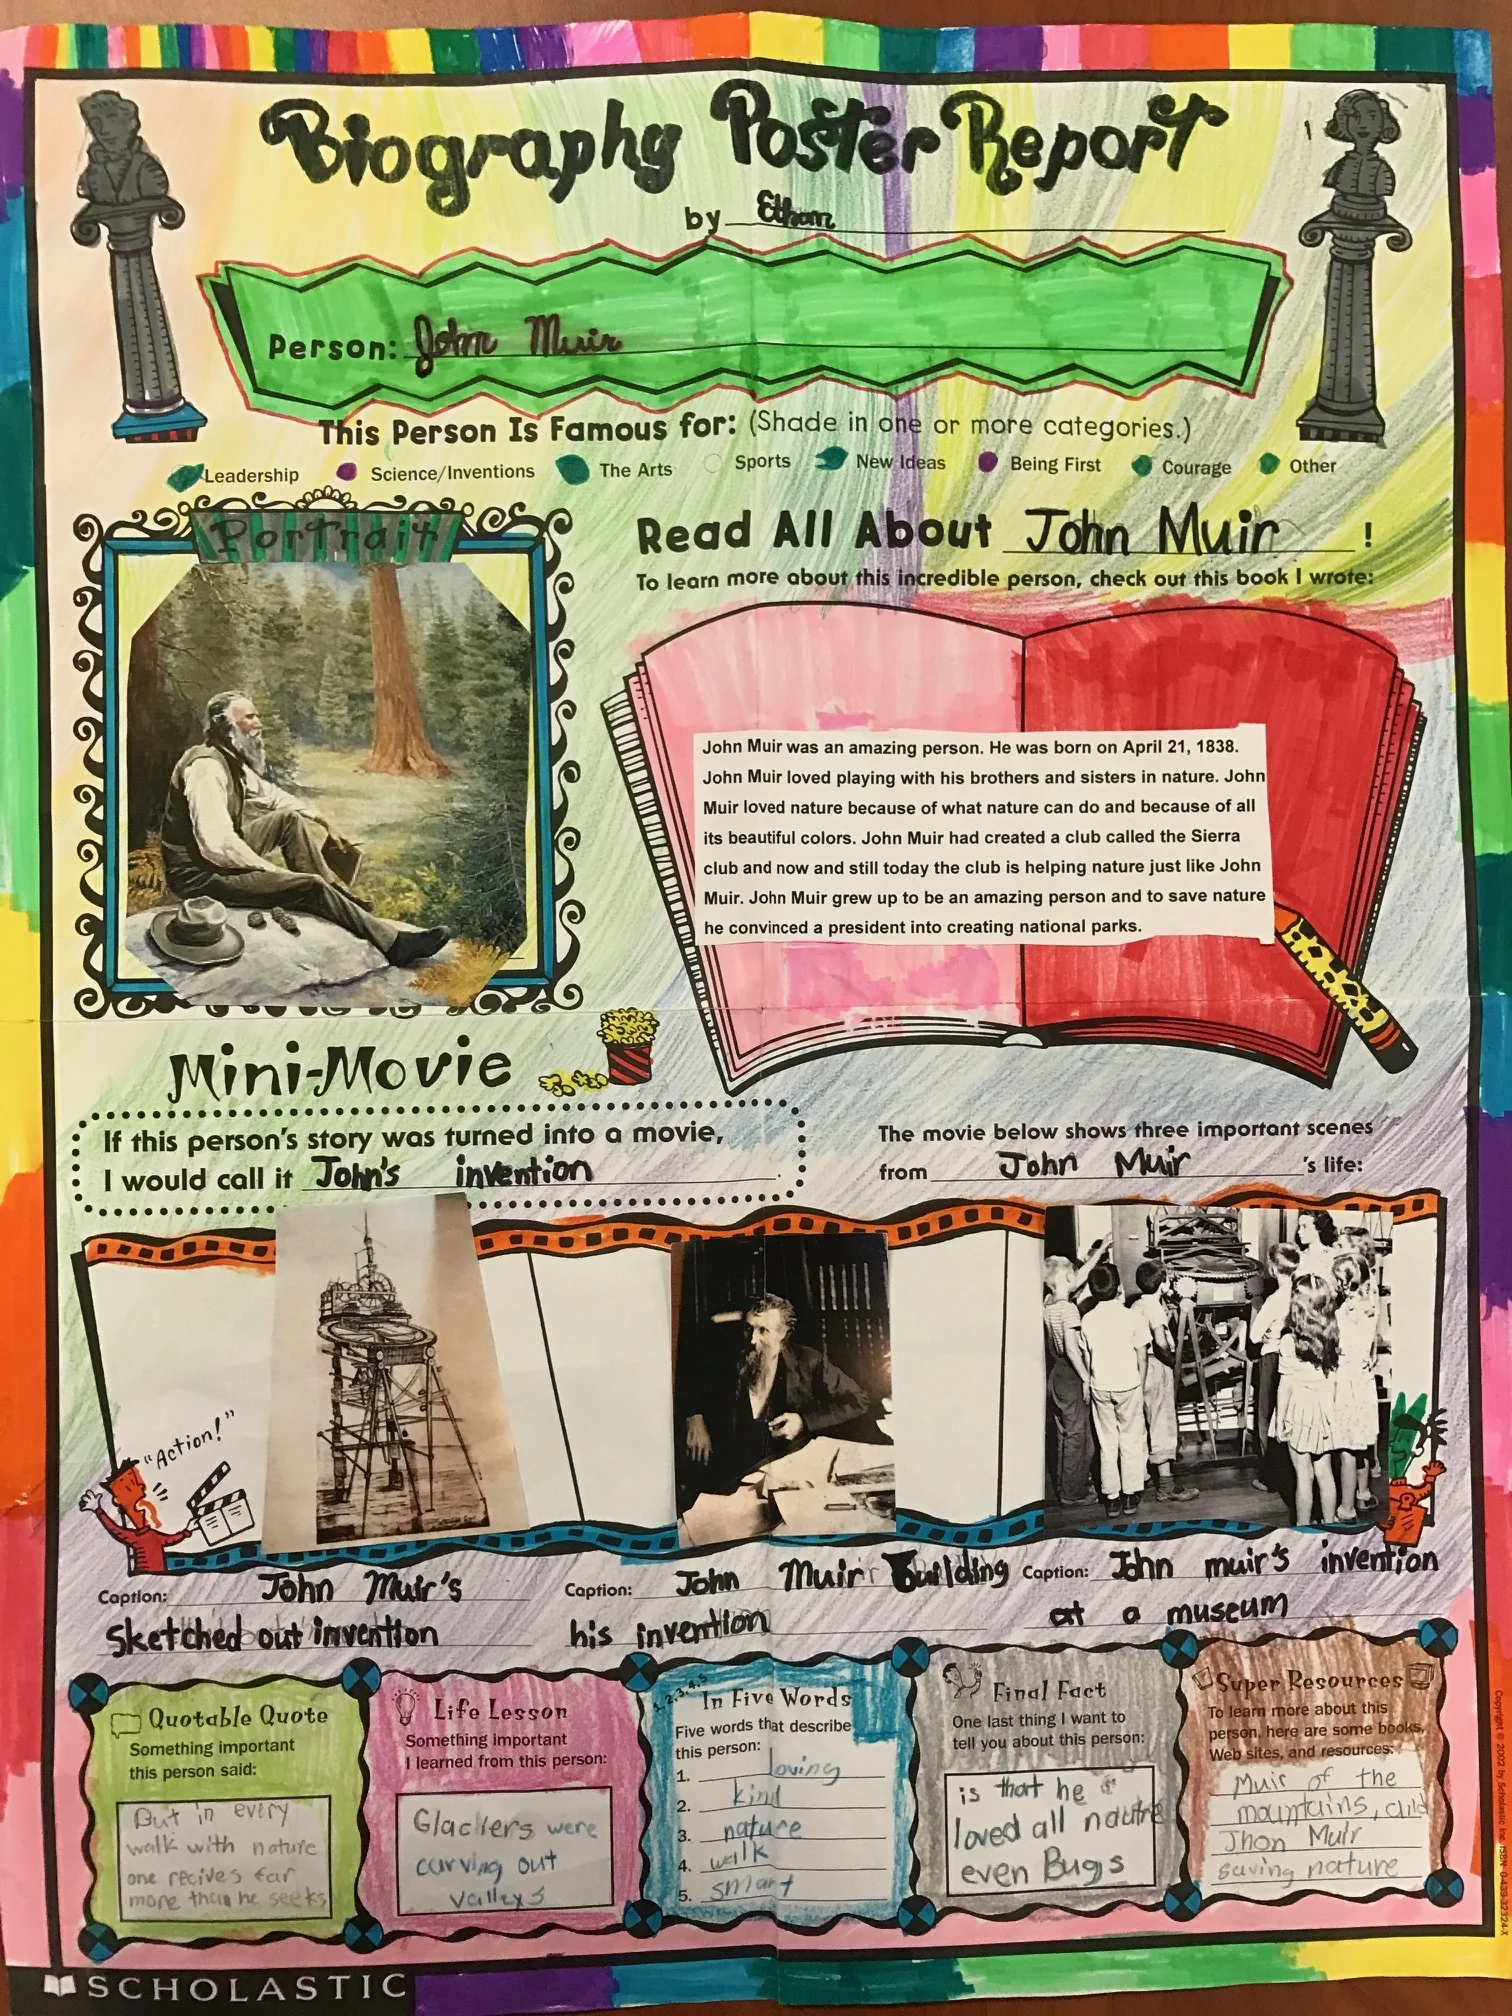 Biography Poster Report
by Ethan
Person: John Muir
This Person Is Famous for: (Shade in one or more categories.)
Leadership Science/Inventions The Arts Sports New Ideas Being First Courage Other
Portrait
Read All About John Muir !
To learn more about this incredible person, check out this book I wrote:
John Muir was an amazing person. He was born on April 21, 1838.
John Muir loved playing with his brothers and sisters in nature. John
Muir loved nature because of what nature can do and because of all
its beautiful colors. John Muir had created a club called the Sierra
club and now and still today the club is helping nature just like John
Muir. John Muir grew up to be an amazing person and to save nature
he convinced a president into creating national parks.
Mini-Movie
If this person's story was turned into a movie,
I would call it John's invention.
The movie below shows three important scenes
from John Muir 's life:
"Action!"
Caption: John Muir's
sketched out invention
Caption: John Muir Building
his invention
Caption: John muir's invention
at a museum
Quotable Quote
Something important
this person said:
But in every
walk with nature
one recives far
more than he seeks
Life Lesson
Something important
I learned from this person:
Glaciers were
carving out
valleys
1,2,3,4,5
In Five Words
Five words that describe
this person:
1. loving
2. kind
3. nature
4. walk
5. smart
Final Fact
One last thing I want to
tell you about this person:
is that he
loved all nautre
even Bugs
Super Resources
To learn more about this
person, here are some books,
Web sites, and resources:
Muir of the
mountains, child
Jhon Muir
saving nature
SCHOLASTIC